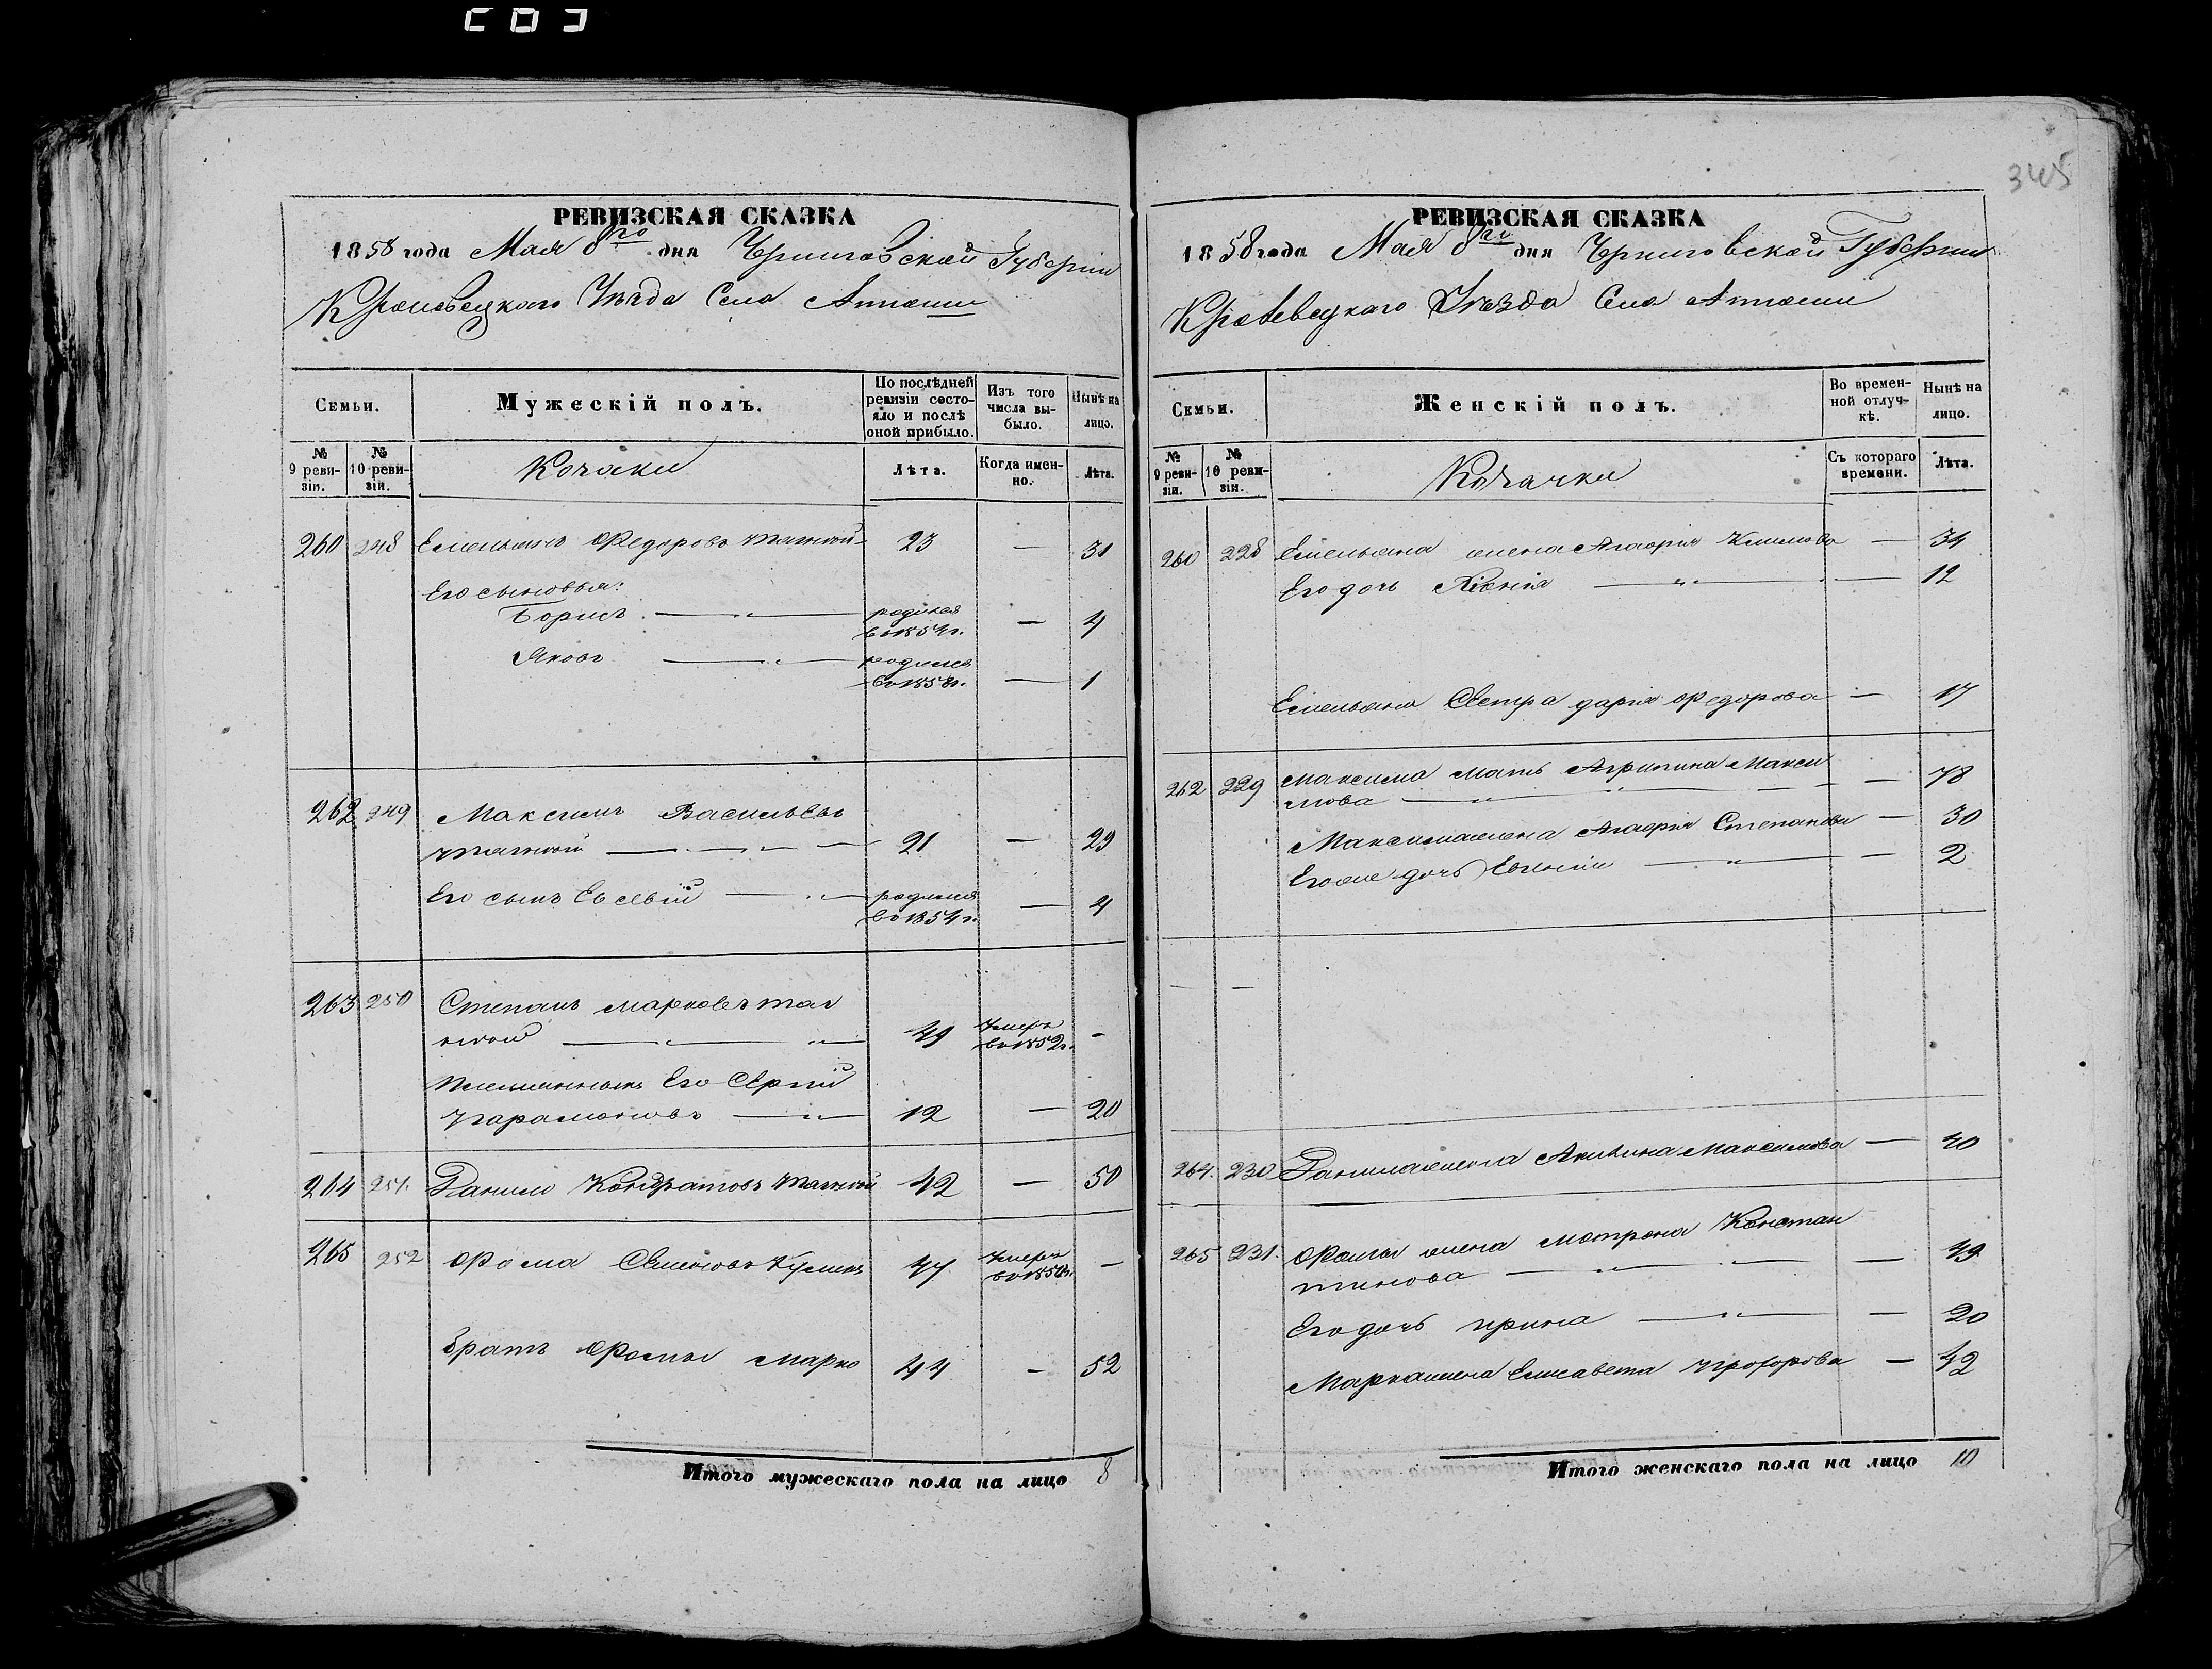 345
РЕВИЗСКАЯ СКАЗКА
1858 года Мая 8го дня Черниговской Губерніи
Кролевецкаго Уѣзда Села
Семьи.
Мужескій полъ.
По послѣдней ревизіи состояло и послѣ оной прибыло.
Изъ того числа выбыло.
Нынѣ на лицо.
№ 9 ревизіи.
№ 10 ревизіи.
Козаки
Лѣта.
Когда именно.
Лѣта.
260 248 Емельянъ Федоровъ 23 — 31
Его сыновья:
Борисъ родился в 1854 г. — 4
Яковъ родился в 1858 г. — 1
262 249 Максимъ Васильевъ
21 — 29
Его сынъ Евсевій родился в 1854 г. — 4
263 250 Степанъ Марковъ
49 Умеръ в 1852 г. -
Племянникъ Его Сергій
Парамоновъ 12 — 20
264 251. Данило Кондратовъ 42 — 50
265 252 Фома Семеновъ 47 Умеръ —
Братъ Фомы Марко 44 — 52
Итого мужескаго пола на лицо 8
РЕВИЗСКАЯ СКАЗКА
1858 года Мая 8го дня Черниговской Губерніи
Кролевецкаго Уѣзда Села
Семьи.
Женскій полъ.
Во временной отлучкѣ.
Нынѣ на лицо.
№ 9 ревизіи.
№ 10 ревизіи.
Козачки
Съ котораго времени.
Лѣта.
260 228 Емельяна жена Агафія Климова — 34
Его дочь Ксенія — 12
Емельяна Сестра Дарія Федорова — 17
262 229 Максима мать Агрипина Макси
мова — 78
Максима жена Агафія Степанова — 30
Его же дочь Евгенія — 2
— —
264. 230 Данила жена Акилина Максимова — 40
265 231. Фомы жена Мотрона Констан
тинова — 49
Его дочь Ирина — 20
Марка жена Елисавета Прохорова — 42
Итого женскаго пола на лицо 10